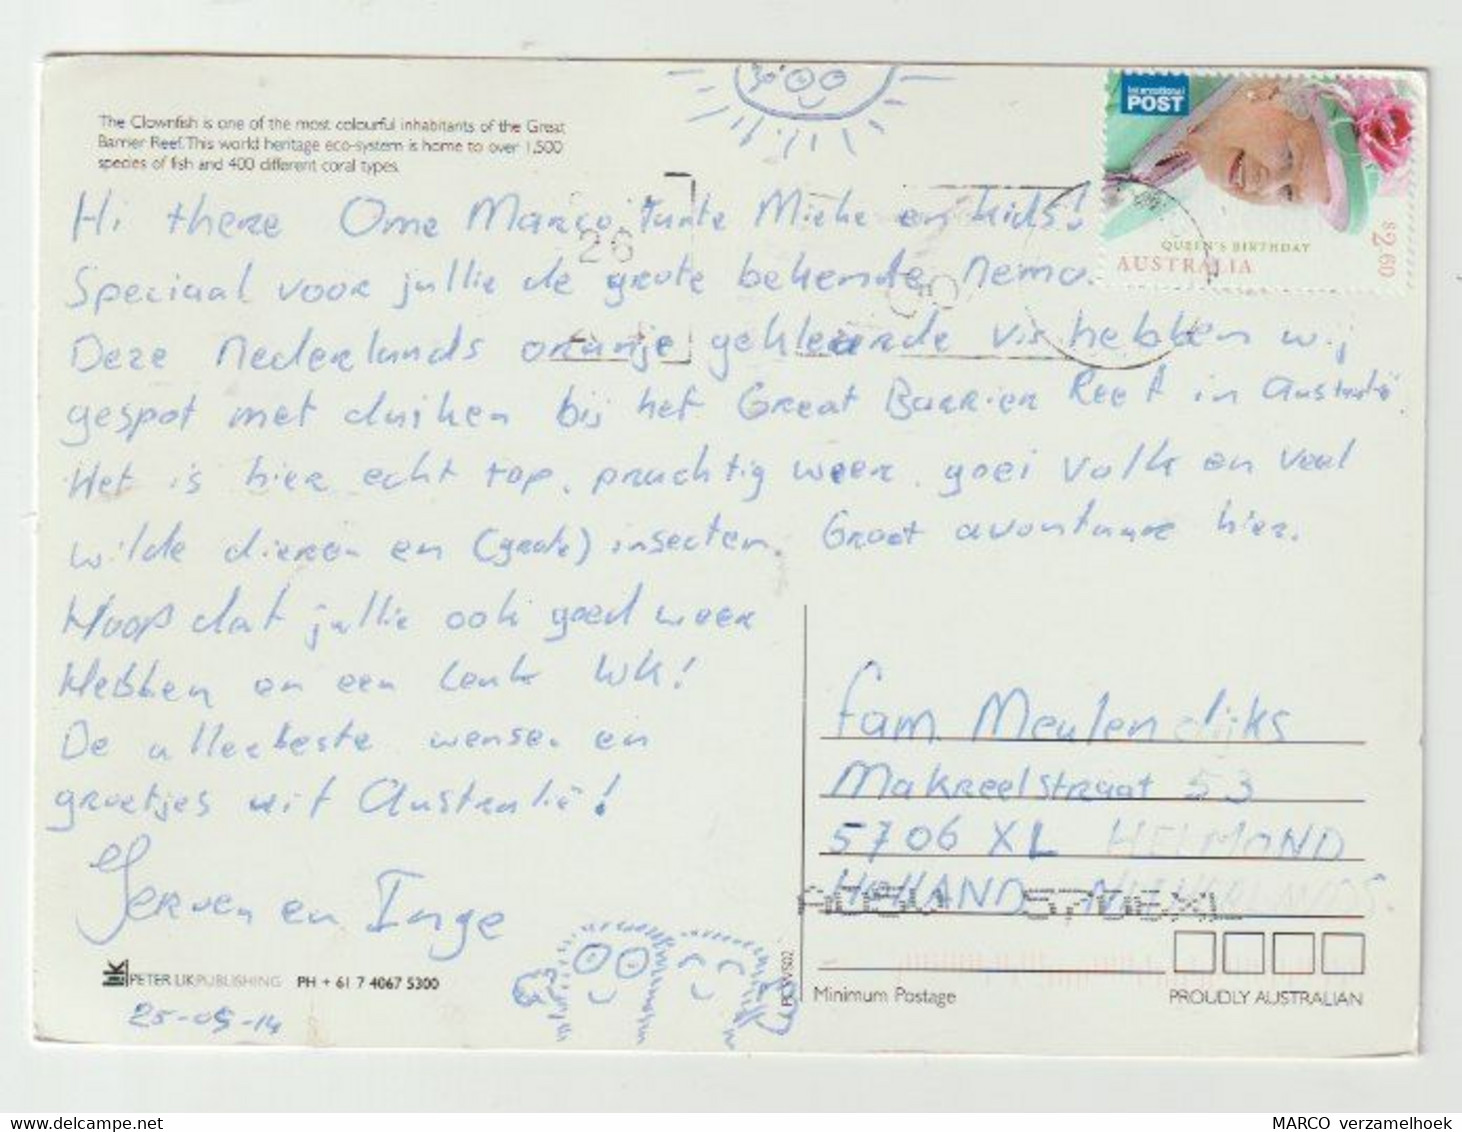 The Clownfish is one of the most colourful inhabitants of the Great
Barrier Reef. This world heritage eco-system is home to over 1,500
species of fish and 400 different coral types.
International
POST
QUEEN'S BIRTHDAY
AUSTRALIA
$2.60
26
Hi there Ome Marco, Tante Mieke en kids!
Speciaal voor jullie de grote bekende nemo.
Deze nederlands oranje gekleurde vis hebben wij
gespot met duiken bij het Great Barrier Reef in Australië.
Het is hier echt top, prachtig weer, goei volk en veel
wilde dieren en (grote) insecten. Groot avontuur hier.
Hoop dat jullie ook goed weer
Hebben en een leuk WK!
De allerbeste wensen en
groetjes uit Australië!
Jeroen en Inge
fam. Meulendijks
Makreelstraat 53
5706 XL HELMOND
HOLLAND NETHERLANDS.
5706XL
PETER LIK PUBLISHING PH + 61 7 4067 5300
25-05-14
Minimum Postage
PROUDLY AUSTRALIAN
MARCO verzamelhoek